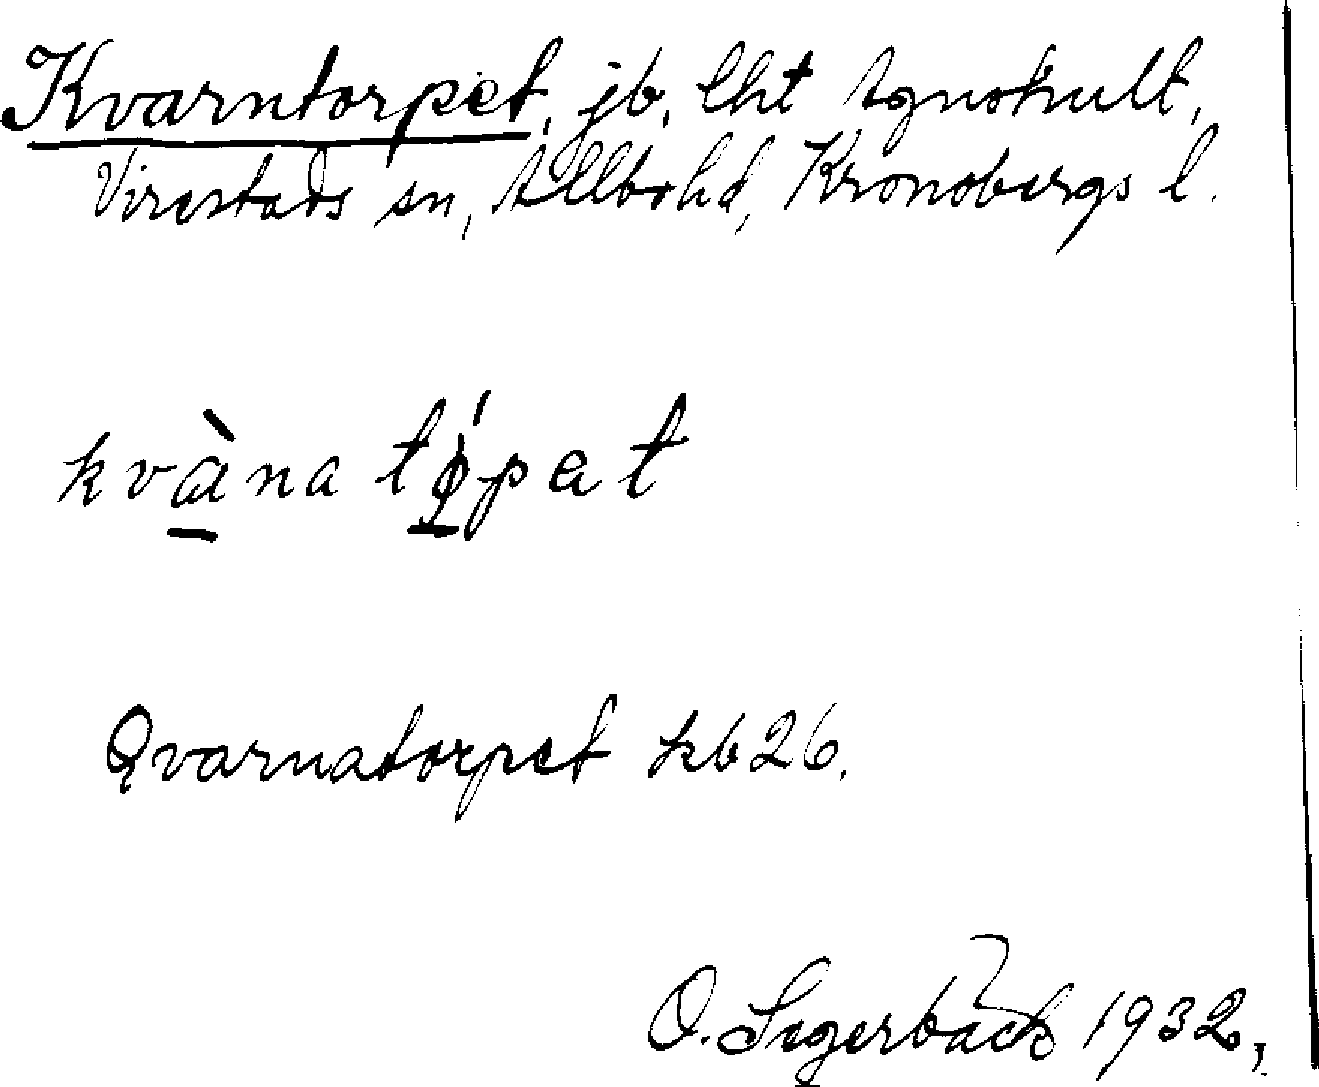 Kvarntorpet, jb, lht Agnskult,
Virestads sn, Allbo hd, Kronobergs l.
kvàna tǫ́pat
Qvarnatorpet kb 26.
O. Segerbäck 1932,